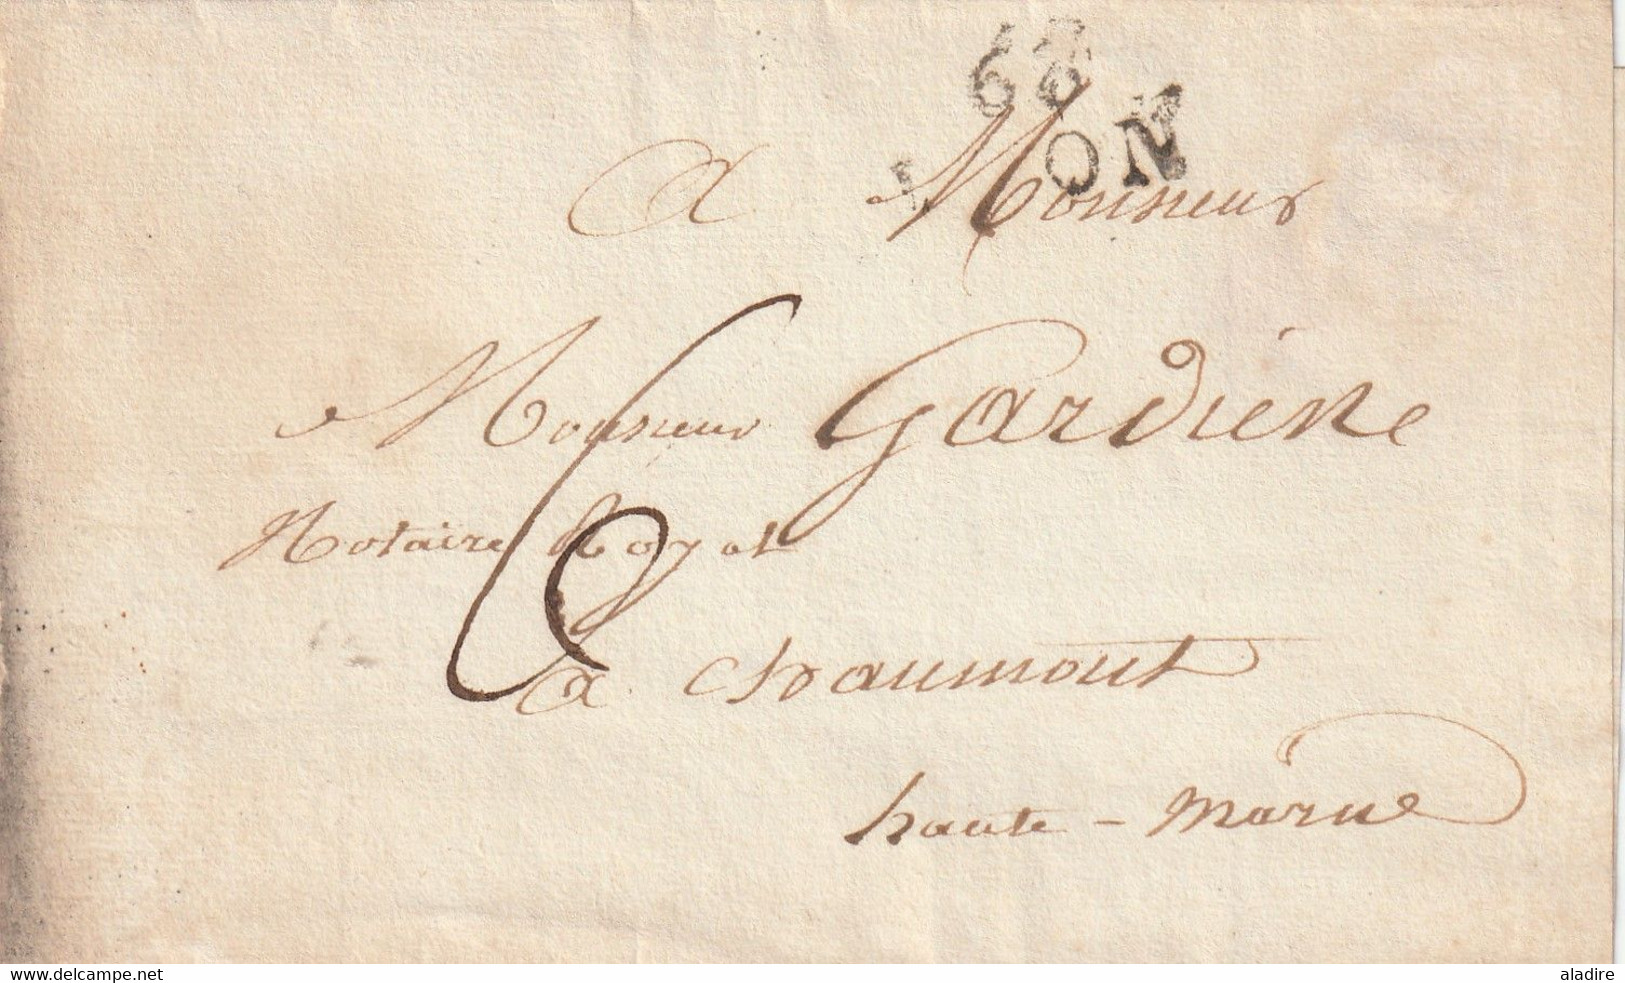 68
LYON
A Monsieur
Monsieur Gardiere
Notaire Royal
6
à Chaumont
haute - marne
www.delcampe.net
aladire